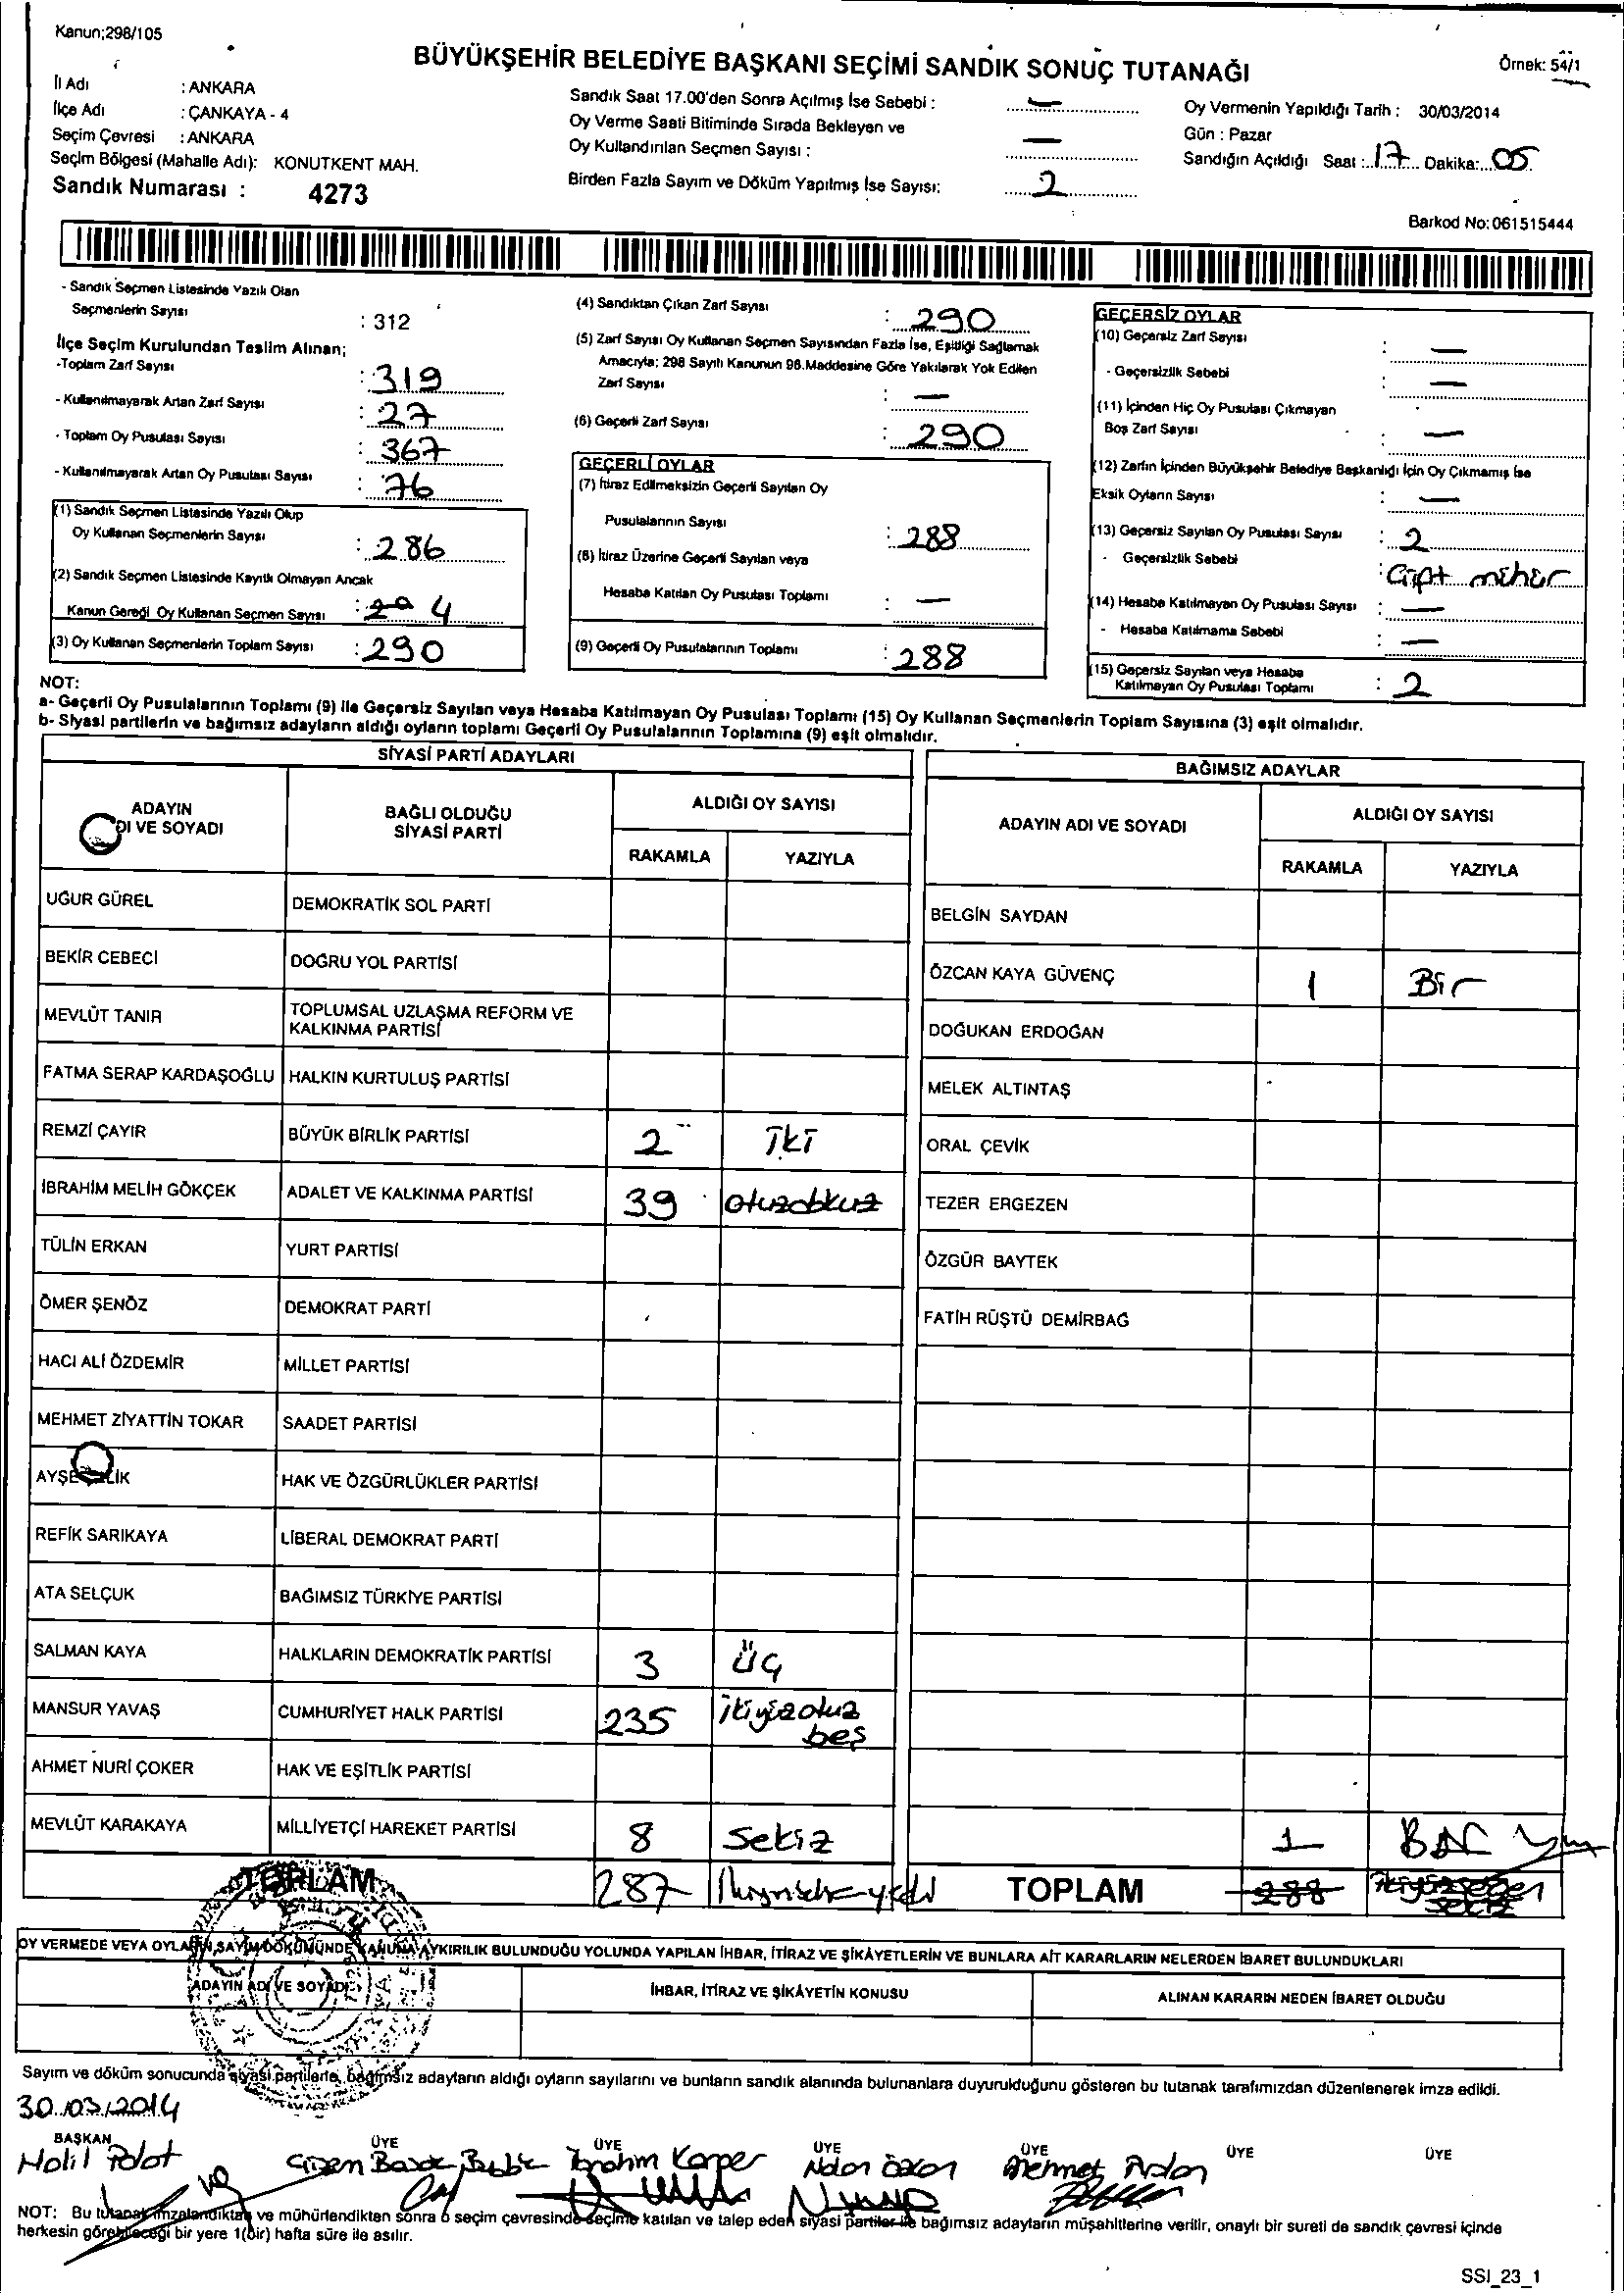 Kanun;298/105
BÜYÜKŞEHİR BELEDİYE BAŞKANI SEÇİMİ SANDIK SONUÇ TUTANAĞI
Örnek: 54/1
İl Adı : ANKARA
İlçe Adı : ÇANKAYA - 4
Seçim Çevresi : ANKARA
Seçim Bölgesi (Mahalle Adı): KONUTKENT MAH.
Sandık Numarası : 4273
Sandık Saat 17.00'den Sonra Açılmış İse Sebebi : —
Oy Verme Saati Bitiminde Sırada Bekleyen ve
Oy Kullandırılan Seçmen Sayısı : —
Birden Fazla Sayım ve Döküm Yapılmış İse Sayısı: 2
Oy Vermenin Yapıldığı Tarih : 30/03/2014
Gün : Pazar
Sandığın Açıldığı Saat : 17 Dakika: 05
Barkod No: 061515444
- Sandık Seçmen Listesinde Yazılı Olan
Seçmenlerin Sayısı : 312
İlçe Seçim Kurulundan Teslim Alınan;
-Toplam Zarf Sayısı : 319
- Kullanılmayarak Artan Zarf Sayısı : 27
- Toplam Oy Pusulası Sayısı : 367
- Kullanılmayarak Artan Oy Pusulası Sayısı : 76
(1) Sandık Seçmen Listesinde Yazılı Olup
Oy Kullanan Seçmenlerin Sayısı : 286
(2) Sandık Seçmen Listesinde Kayıtlı Olmayan Ancak
Kanun Gereği Oy Kullanan Seçmen Sayısı : 4
(3) Oy Kullanan Seçmenlerin Toplam Sayısı : 290
(4) Sandıktan Çıkan Zarf Sayısı : 290
(5) Zarf Sayısı Oy Kullanan Seçmen Sayısından Fazla İse, Eşitliği Sağlamak
Amacıyla; 298 Sayılı Kanunun 98.Maddesine Göre Yakılarak Yok Edilen
Zarf Sayısı : —
(6) Geçerli Zarf Sayısı : 290
GEÇERLİ OYLAR
(7) İtiraz Edilmeksizin Geçerli Sayılan Oy
Pusulalarının Sayısı : 288
(8) İtiraz Üzerine Geçerli Sayılan veya
Hesaba Katılan Oy Pusulası Toplamı : —
(9) Geçerli Oy Pusulalarının Toplamı : 288
GEÇERSİZ OYLAR
(10) Geçersiz Zarf Sayısı : —
- Geçersizlik Sebebi : —
(11) İçinden Hiç Oy Pusulası Çıkmayan
Boş Zarf Sayısı : —
(12) Zarfın İçinden Büyükşehir Belediye Başkanlığı İçin Oy Çıkmamış İse
Eksik Oyların Sayısı : —
(13) Geçersiz Sayılan Oy Pusulası Sayısı : 2
- Geçersizlik Sebebi : Çift mühür
(14) Hesaba Katılmayan Oy Pusulası Sayısı : —
- Hesaba Katılmama Sebebi : —
(15) Geçersiz Sayılan veya Hesaba
Katılmayan Oy Pusulası Toplamı : 2
NOT:
a- Geçerli Oy Pusulalarının Toplamı (9) ile Geçersiz Sayılan veya Hesaba Katılmayan Oy Pusulası Toplamı (15) Oy Kullanan Seçmenlerin Toplam Sayısına (3) eşit olmalıdır.
b- Siyasi partilerin ve bağımsız adayların aldığı oyların toplamı Geçerli Oy Pusulalarının Toplamına (9) eşit olmalıdır.
SİYASİ PARTİ ADAYLARI
ADAYIN
DI VE SOYADI
BAĞLI OLDUĞU
SİYASİ PARTİ
ALDIĞI OY SAYISI
RAKAMLA YAZIYLA
UĞUR GÜREL DEMOKRATİK SOL PARTİ
BEKİR CEBECİ DOĞRU YOL PARTİSİ
MEVLÜT TANIR TOPLUMSAL UZLAŞMA REFORM VE
KALKINMA PARTİSİ
FATMA SERAP KARDAŞOĞLU HALKIN KURTULUŞ PARTİSİ
REMZİ ÇAYIR BÜYÜK BİRLİK PARTİSİ 2 İKİ
İBRAHİM MELİH GÖKÇEK ADALET VE KALKINMA PARTİSİ 39 otuzdokuz
TÜLİN ERKAN YURT PARTİSİ
ÖMER ŞENÖZ DEMOKRAT PARTİ
HACI ALİ ÖZDEMİR MİLLET PARTİSİ
MEHMET ZİYATTİN TOKAR SAADET PARTİSİ
AYŞE ÇELİK HAK VE ÖZGÜRLÜKLER PARTİSİ
REFİK SARIKAYA LİBERAL DEMOKRAT PARTİ
ATA SELÇUK BAĞIMSIZ TÜRKİYE PARTİSİ
SALMAN KAYA HALKLARIN DEMOKRATİK PARTİSİ 3 üç
MANSUR YAVAŞ CUMHURİYET HALK PARTİSİ 235 ikiyüzotuz
beş
AHMET NURİ ÇOKER HAK VE EŞİTLİK PARTİSİ
MEVLÜT KARAKAYA MİLLİYETÇİ HAREKET PARTİSİ 8 Sekiz
TOPLAM 287
BAĞIMSIZ ADAYLAR
ADAYIN ADI VE SOYADI
ALDIĞI OY SAYISI
RAKAMLA YAZIYLA
BELGİN SAYDAN
ÖZCAN KAYA GÜVENÇ 1 Bir
DOĞUKAN ERDOĞAN
MELEK ALTINTAŞ
ORAL ÇEVİK
TEZER ERGEZEN
ÖZGÜR BAYTEK
FATİH RÜŞTÜ DEMİRBAĞ
1
TOPLAM 288
OY VERMEDE VEYA OYLARIN SAYIM DÖKÜMÜNDE KANUNA AYKIRILIK BULUNDUĞU YOLUNDA YAPILAN İHBAR, İTİRAZ VE ŞİKÂYETLERİN VE BUNLARA AİT KARARLARIN NELERDEN İBARET BULUNDUKLARI
ADAYIN ADI VE SOYADI
İHBAR, İTİRAZ VE ŞİKÂYETİN KONUSU
ALINAN KARARIN NEDEN İBARET OLDUĞU
Sayım ve döküm sonucunda siyasi partilerle, bağımsız adayların aldığı oyların sayılarını ve bunların sandık alanında bulunanlara duyurulduğunu gösteren bu tutanak tarafımızdan düzenlenerek imza edildi.
30.03.2014
BAŞKAN ÜYE ÜYE ÜYE ÜYE ÜYE ÜYE
Halil Polat
NOT: Bu tutanak imzalandıktan ve mühürlendikten sonra o seçim çevresinde seçime katılan ve talep eden siyasi partiler ile bağımsız adayların müşahitlerine verilir, onaylı bir sureti de sandık çevresi içinde
herkesin görebileceği bir yere 1(bir) hafta süre ile asılır.
SSI_23_1